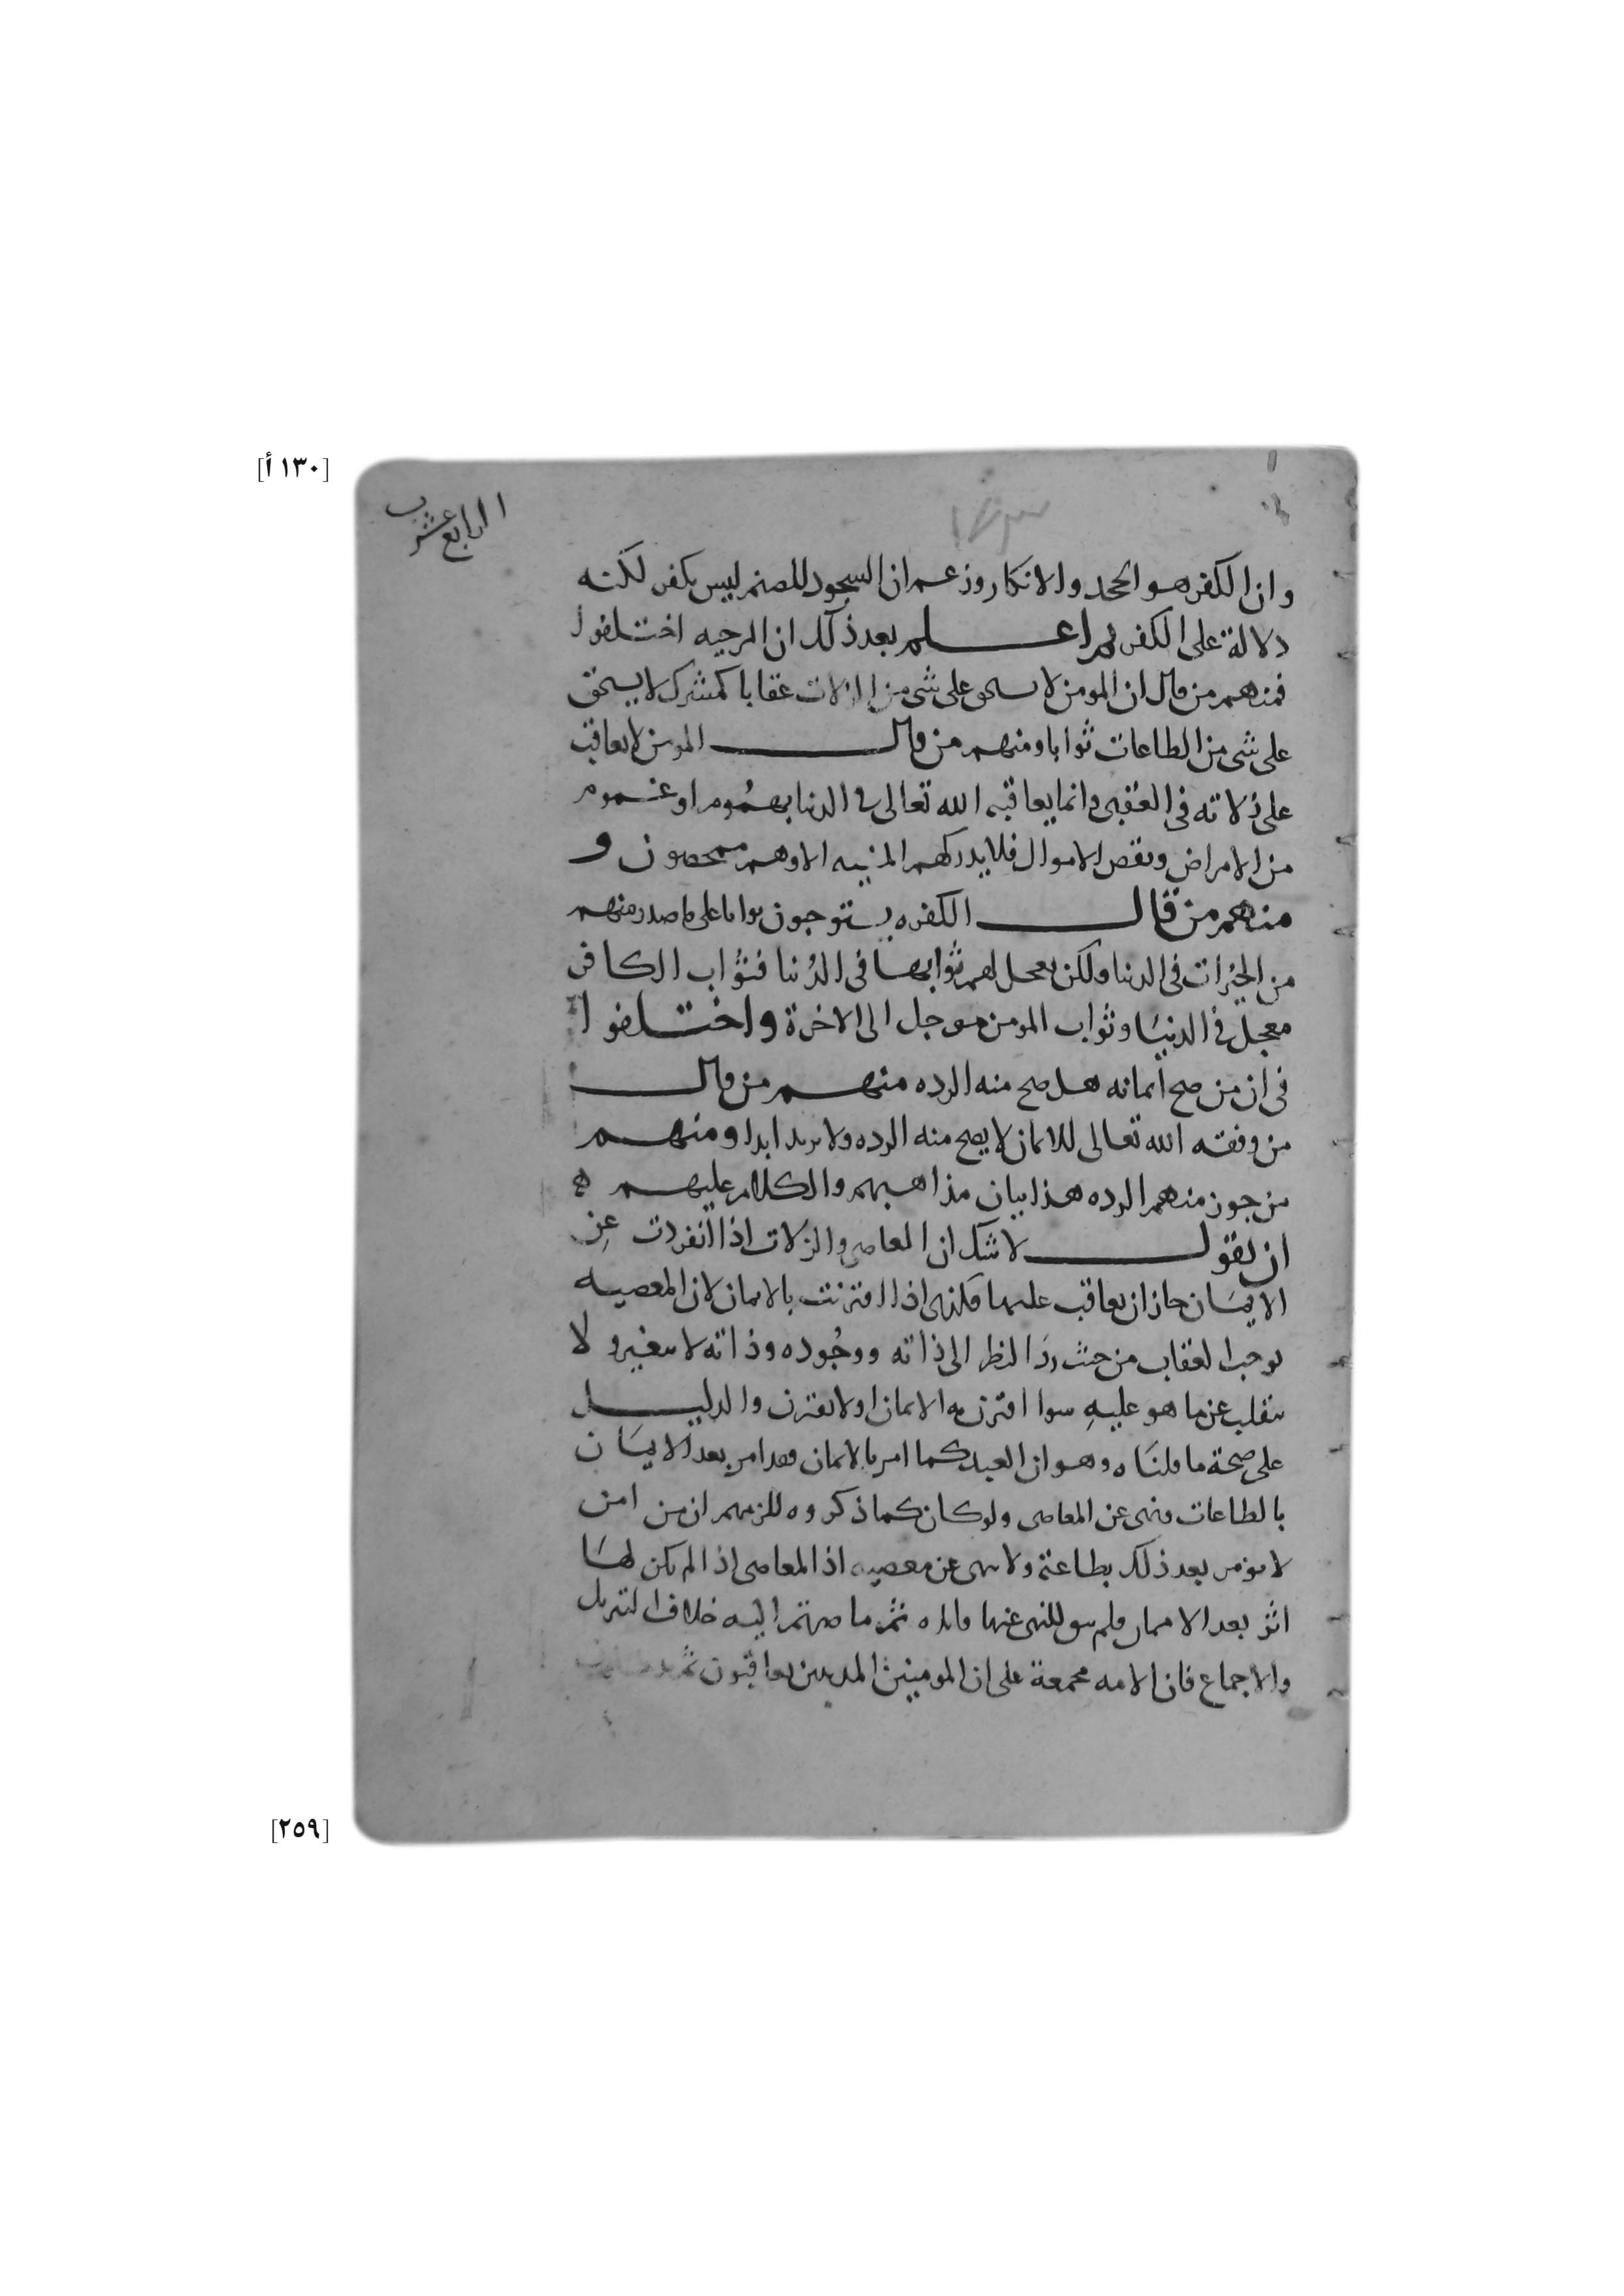 [١٣٠ أ]
الرابع عشر
وان الكفر هو الجحد والانكار وزعم ان السجود للصنم ليس بكفر لكنه
دلالة على الكفر ثم اعلم بعد ذلك ان المرجيه اختلفوا
فمنهم من قال ان المومن لا يستحق على شى من الزلات عقابا كمشرك لا يستحق
على شى من الطاعات ثوابا ومنهم من قال المومن لا يعاقب
على زلاته فى العقبى وانما يعاقبه الله تعالى فى الدنيا بهموم او غموم
من الامراض ونقص الاموال فلا يدركهم المنيه الا وهم ممحصون و
منهم من قال الكفره يستوجبون ثوابا على ما صدر منهم
من الخيرات فى الدنيا ولكن يعجل لهم ثوابها فى الدنيا فثواب الكافر
معجل فى الدنيا وثواب المومن موجل الى الاخرة واختلفوا
فى ان من صح ايمانه هل صح منه الرده منهم من قال
من وفقه الله تعالى للايمان لا يصح منه الرده ولا يرتد ابدا ومنهم
من جوز منهم الرده هذا بيان مذاهبهم والكلام عليهم
ان نقول لا شك ان المعاصى والزلات اذا انفردت عن
الايمان جاز ان يعاقب عليها فكذى اذا اقترنت بالايمان لان المعصيه
يوجب العقاب من حيث رد النظر الى ذاته ووجوده وذاته لا يتغير ولا
ينقلب عن ما هو عليه سوا اقترن به الايمان او لا يقترن والدليل
على صحة ما قلناه وهو ان العبد كما امر بالايمان فقد امر بعد الايمان
بالطاعات ونهى عن المعاصى ولو كان كما ذكروه للزمهم ان من امن
لا يومر بعد ذلك بطاعة ولا ينهى عن معصيه اذ المعاصى اذا لم يكن لها
اثر بعد الايمان فلم يبق للنهى عنها فايده ثم ما صرتم اليه خلاف التنزيل
والاجماع فان الامه مجمعة على ان المومنين المذنبين يعاقبون
[٢٥٩]